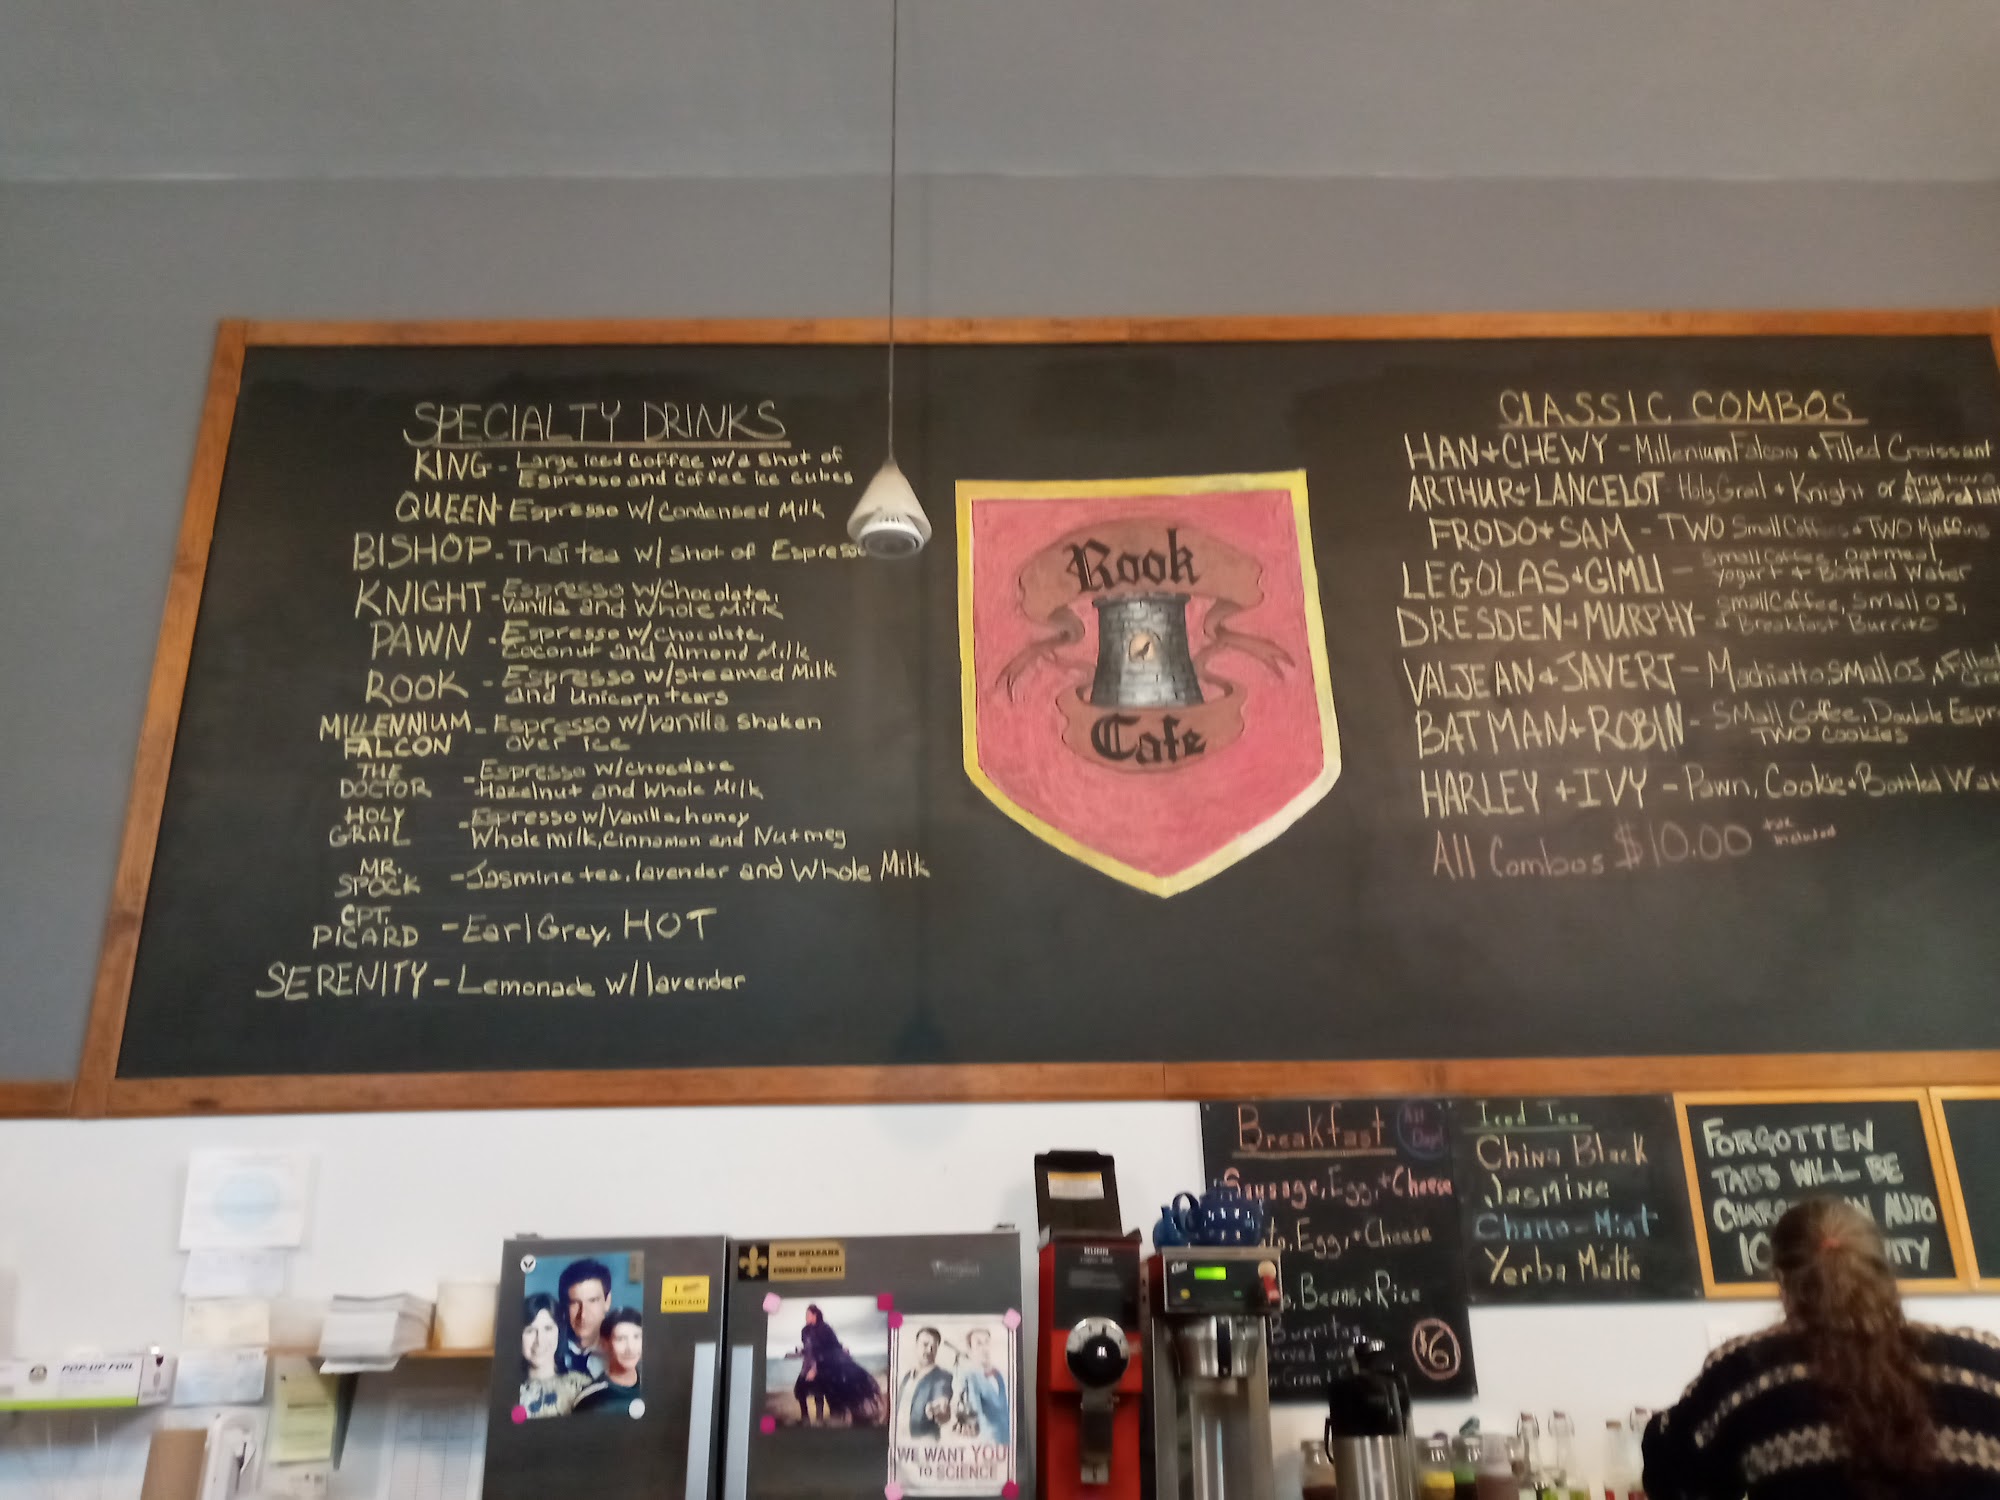 SPECIALTY DRINKS
KING - Large iced coffee w/a shot of
Espresso and coffee ice cubes
QUEEN - Espresso w/Condensed Milk
BISHOP - Thai tea w/ shot of Espresso
KNIGHT - Espresso w/Chocolate,
Vanilla and Whole Milk
PAWN - Espresso w/Chocolate,
Coconut and Almond Milk
ROOK - Espresso w/steamed Milk
and Unicorn tears
MILLENNIUM FALCON - Espresso w/vanilla shaken
over ice
THE DOCTOR - Espresso w/chocolate
Hazelnut and Whole Milk
HOLY GRAIL - Espresso w/Vanilla, honey
Whole milk, Cinnamon and Nutmeg
MR. SPOCK - Jasmine tea, lavender and Whole Milk
CPT. PICARD - Earl Grey, HOT
SERENITY - Lemonade w/lavender
Rook
Cafe
CLASSIC COMBOS
HAN + CHEWY - Millenium Falcon + Filled Croissant
ARTHUR + LANCELOT Holy Grail + Knight or Any two
flavored
FRODO + SAM - TWO Small Coffees + TWO Muffins
LEGOLAS + GIMLI - Small Coffee, Oatmeal,
Yogurt + Bottled Water
DRESDEN + MURPHY - Small Coffee, Small OJ,
+ Breakfast Burrito
VALJEAN + JAVERT - Machiatto, SMall OJ, + Filled
BATMAN + ROBIN - SMall Coffee, Double Espr
TWO Cookies
HARLEY + IVY - Pawn, Cookie + Bottled Wat
All Combos $10.00 tax
included
Breakfast All
Day!
Sausage, Egg, + Cheese
Egg, + Cheese
Beans, + Rice
Burritos
$6
Iced Tea
China Black
Jasmine
Yerba Matte
FORGOTTEN
TABS WILL BE
AUTO
NEW ORLEANS
COMING BACK!!
CHICAGO
WE WANT YOU
TO SCIENCE
BUNN
POP-UP FOIL